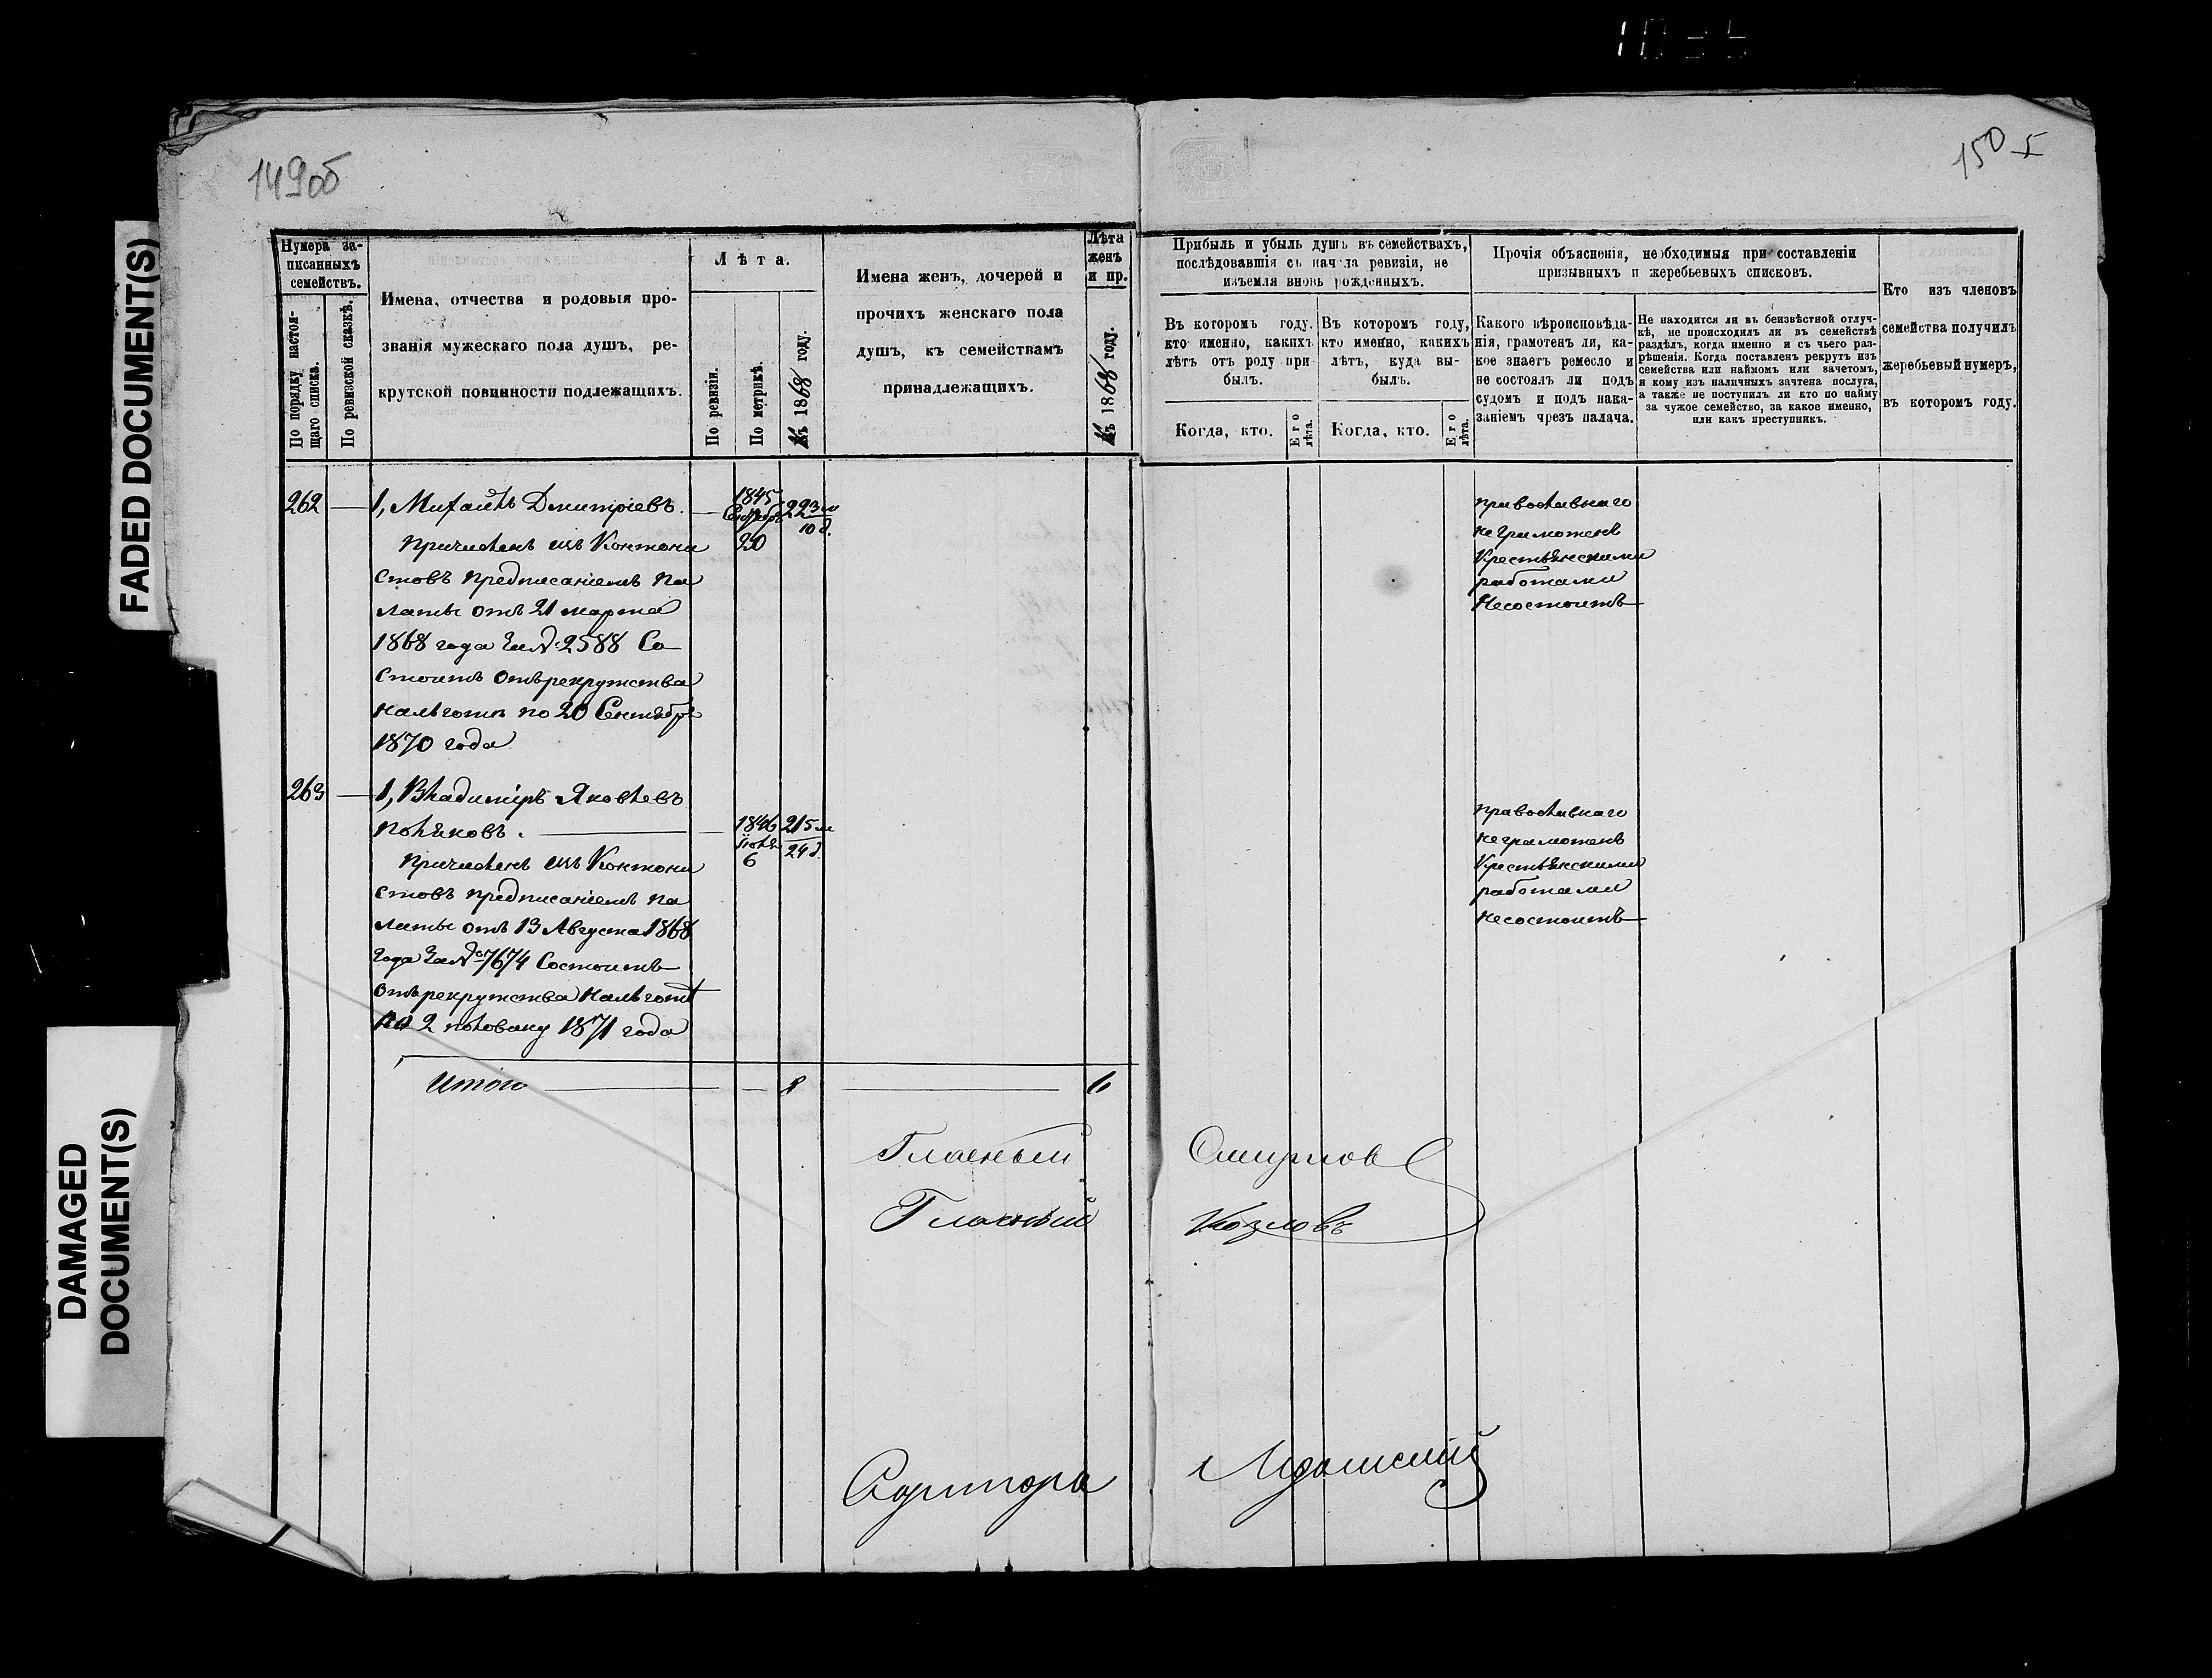 149об
150
FADED DOCUMENT(S)
DAMAGED
DOCUMENT(S)
Нумера за-
писанныхъ
семействъ.
По порядку настоя-
щаго списка.
По ревизской сказкѣ.
Имена, отчества и родовыя про-
званія мужескаго пола душъ, ре-
крутской повинности подлежащихъ.
Лѣта.
По ревизіи.
По метрикѣ.
Къ 1868 году.
Имена женъ, дочерей и
прочихъ женскаго пола
душъ, къ семействамъ
принадлежащихъ.
Лѣта
женъ
и пр.
Къ 1868 году.
Прибыль и убыль душъ въ семействахъ,
послѣдовавшія съ начала ревизіи, не
изъемля вновь рожденныхъ.
Въ которомъ году.
кто именно, какихъ
лѣтъ отъ роду при-
былъ.
Когда, кто.
Его
лѣта.
Въ которомъ году,
кто именно, какихъ
лѣтъ, куда вы-
былъ.
Когда, кто.
Его
лѣта.
Прочія объясненія, необходимыя при составленіи
призывныхъ и жеребьевыхъ списковъ.
Какого вѣроисповѣда-
нія, грамотенъ ли, ка-
кое знаетъ ремесло и
не состоялъ ли подъ
судомъ и подъ нака-
заніемъ чрезъ палача.
Не находится ли въ безизвѣстной отлуч-
кѣ, не происходилъ ли въ семействѣ
раздѣлъ, когда именно и съ чьего раз-
рѣшенія. Когда поставленъ рекрутъ изъ
семейства или наймомъ или зачетомъ,
и кому изъ наличныхъ зачтена послуга,
а также не поступилъ ли кто по найму
за чужое семейство, за какое именно,
или какъ преступникъ.
Кто изъ членовъ
семейства получилъ
жеребьевый нумеръ,
въ которомъ году.
262 — 1, Михаилъ Дмитріевъ. —
1845
Сентября
20
22 3 м
10 д.
Причисленъ изъ Контони
стовъ предписаніемъ Па
латы отъ 21 марта
1868 года за № 2588 Со
стоитъ отъ рекрутства
на льготѣ по 20 Сентября
1870 года
православнаго
неграмотенъ
Крестьянскими
работами
несостоитъ
263 — 1, Владиміръ Яковлевъ
Поляковъ. —
1846
Іюля
6
21 5 м
24 д.
Причисленъ изъ Контони
стовъ предписаніемъ Па
латы отъ 13 Августа 1868
года за № 7674 Состоитъ
отъ рекрутства на льготѣ
на 2 половину 1871 года
православнаго
неграмотенъ
Крестьянскими
работами
несостоитъ
Итого — 8 — 6
Гласный Смирнов
Гласный Козловъ